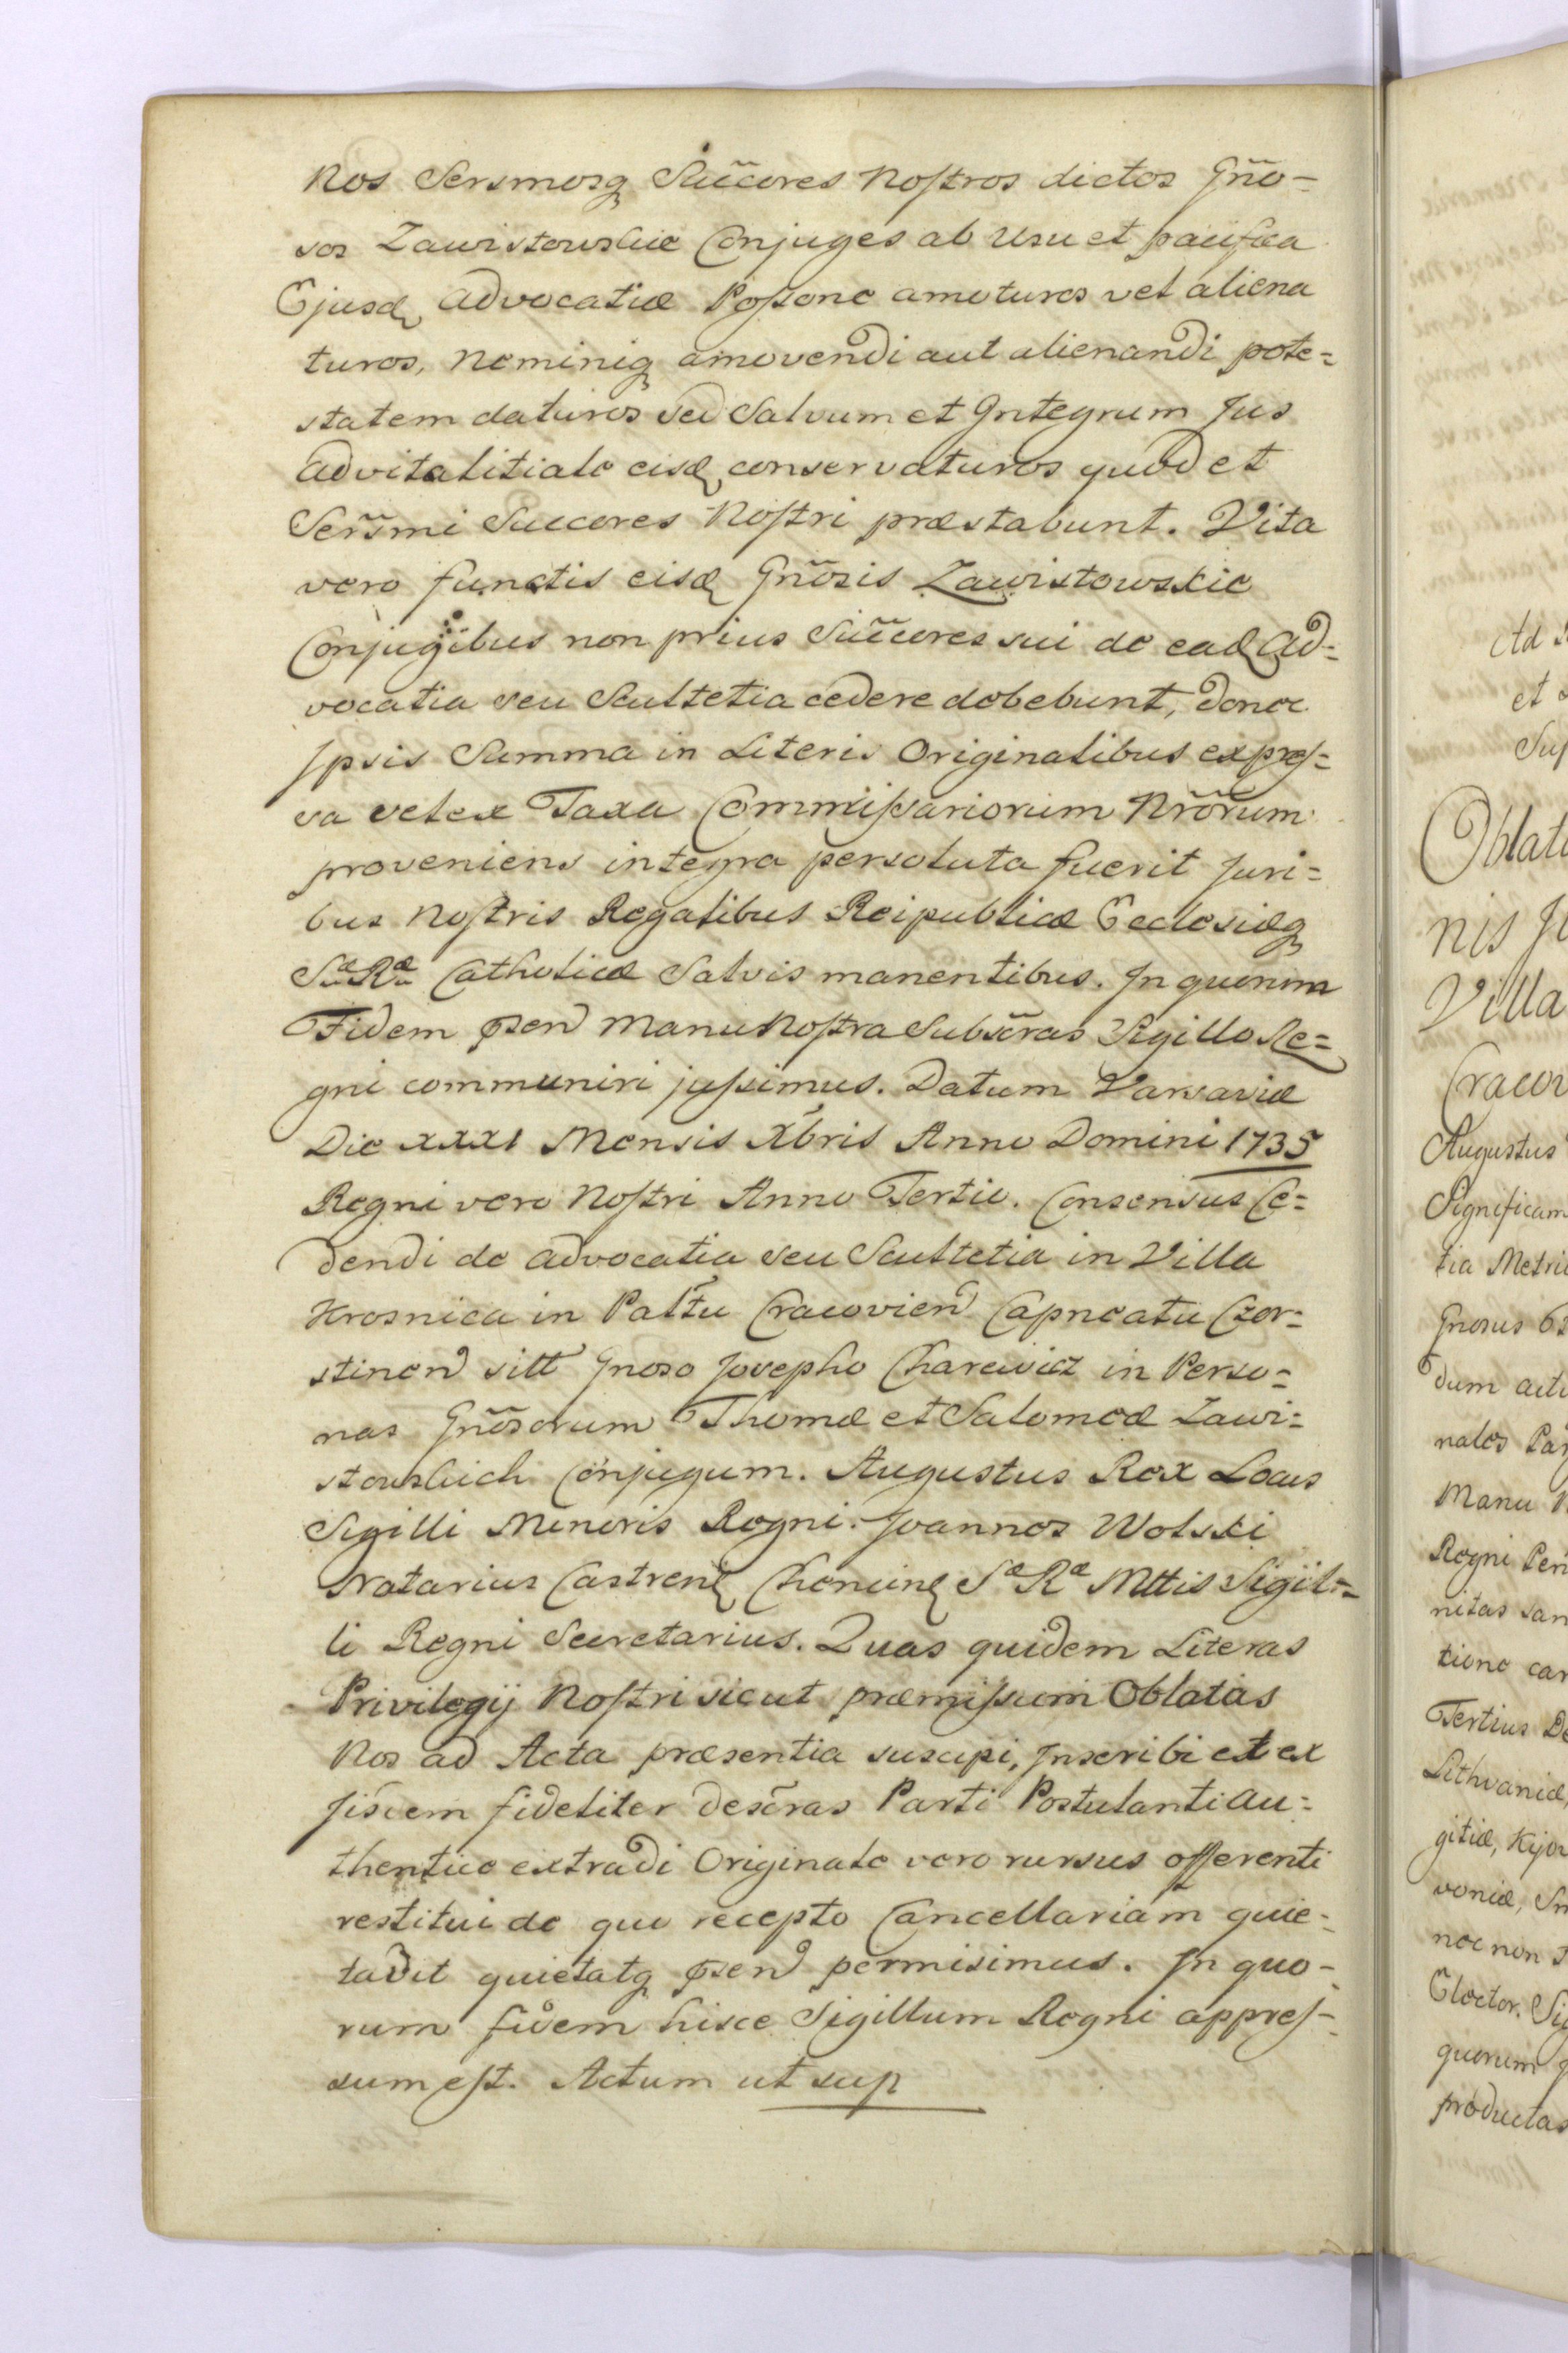 Nos Sersmosq Succores Nostros dictos Gno-
sos Zawistowskie Conjuges ab Usu et pacifica
Ejusd Advocatiæ Possone amoturos vel aliena
turos, Neminiq amovendi aut alienandi pote=
statem daturos sed Salvum et Integrum Jus
Advitalitiale eisd conservaturos quod et
Sersmi Succores Nostri præstabunt. Vita
vero functis eisd Gnosis Zawistowskie
Conjugibus non prius Succores sui de ead Ad=
vocatia seu Scultetia cedere debebunt, donec
Ipsis Summa in Literis Originalibus expres=
sa vel ex Taxa Commissariorum Nrorum
proveniens integra persoluta fuerit Juri=
bus Nostris Regalibus Reipublicæ Ecclesiæq
Sæ Ræ Catholicæ Salvis manentibus. In quorum
Fidem psen Manu Nostra Subscras Sigillo Re=
gni communiri jussimus. Datum Varsaviæ
Die XXXI Mensis Xbris Anno Domini 1735
Regni vero Nostri Anno Tertio. Consensus Ce=
dendi de Advocatia seu Scultetia in Villa
Krosnica in Palttu Cracovien Capneatu Czor=
stinen sitt Gnoso Josepho Charewicz in Perso=
nas Gnosorum Thomæ et Salomeæ Zawi=
stowskich Conjugum. Augustus Rex Locus
Sigilli Minoris Regni. Joannes Wolski
Notarius Castren Chencin Sæ Ræ Mttis Sigil=
li Regni Secretarius. Quas quidem Literas
Privilegij Nostri sicut præmissum Oblatas
Nos ad Acta præsentia suscipi, Inscribi et ex
Jisdem fideliter descras Parti Postulanti Au=
thentice extradi Originale vero rursus offerenti
restitui de quo recepto Cancellariam quie-
tavit quietatq psen permisimus. In quo-
rum fidem hisce Sigillum Regni appres-
sum est. Actum ut sup
Ad
et
Oblati
nis
Villa
Cracov
Augustus
Significam
tia Metri
Gnosus
dum
nales
Manu
Regni
nitas
tione
Tertius
Lithvaniæ,
gitiæ, Kijov
voniæ,
nec non
Elector.
quorum
productas